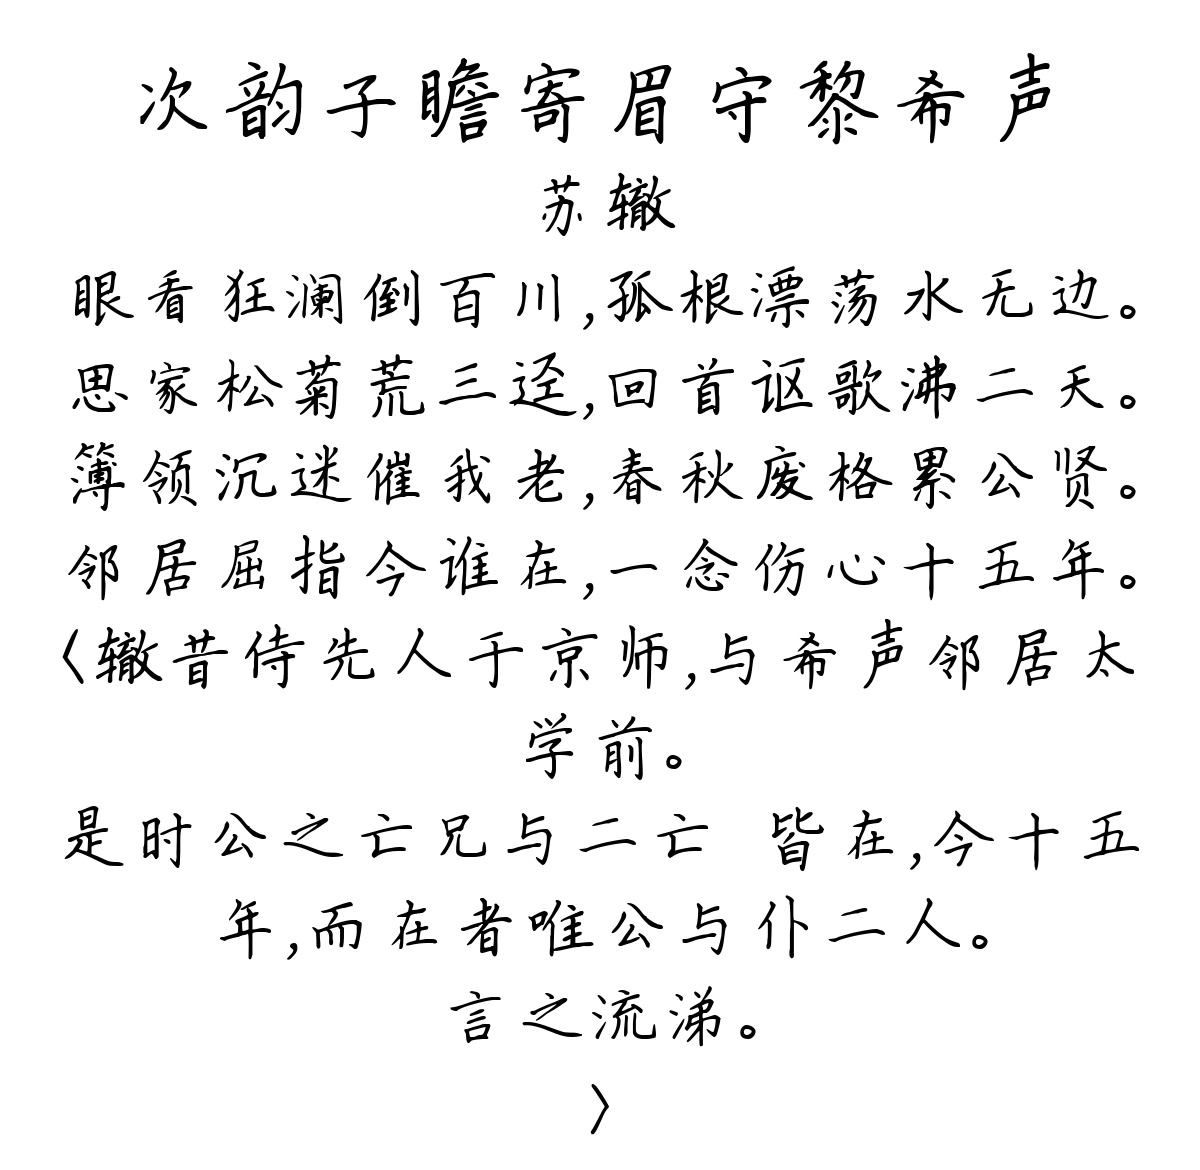 次韵子瞻寄眉守黎希声
苏辙
眼看狂澜倒百川,孤根漂荡水无边。
思家松菊荒三迳,回首讴歌沸二天。
簿领沉迷催我老,春秋废格累公贤。
邻居屈指今谁在,一念伤心十五年。
〈辙昔侍先人于京师,与希声邻居太
学前。
是时公之亡兄与二亡 皆在,今十五
年,而在者唯公与仆二人。
言之流涕。
〉